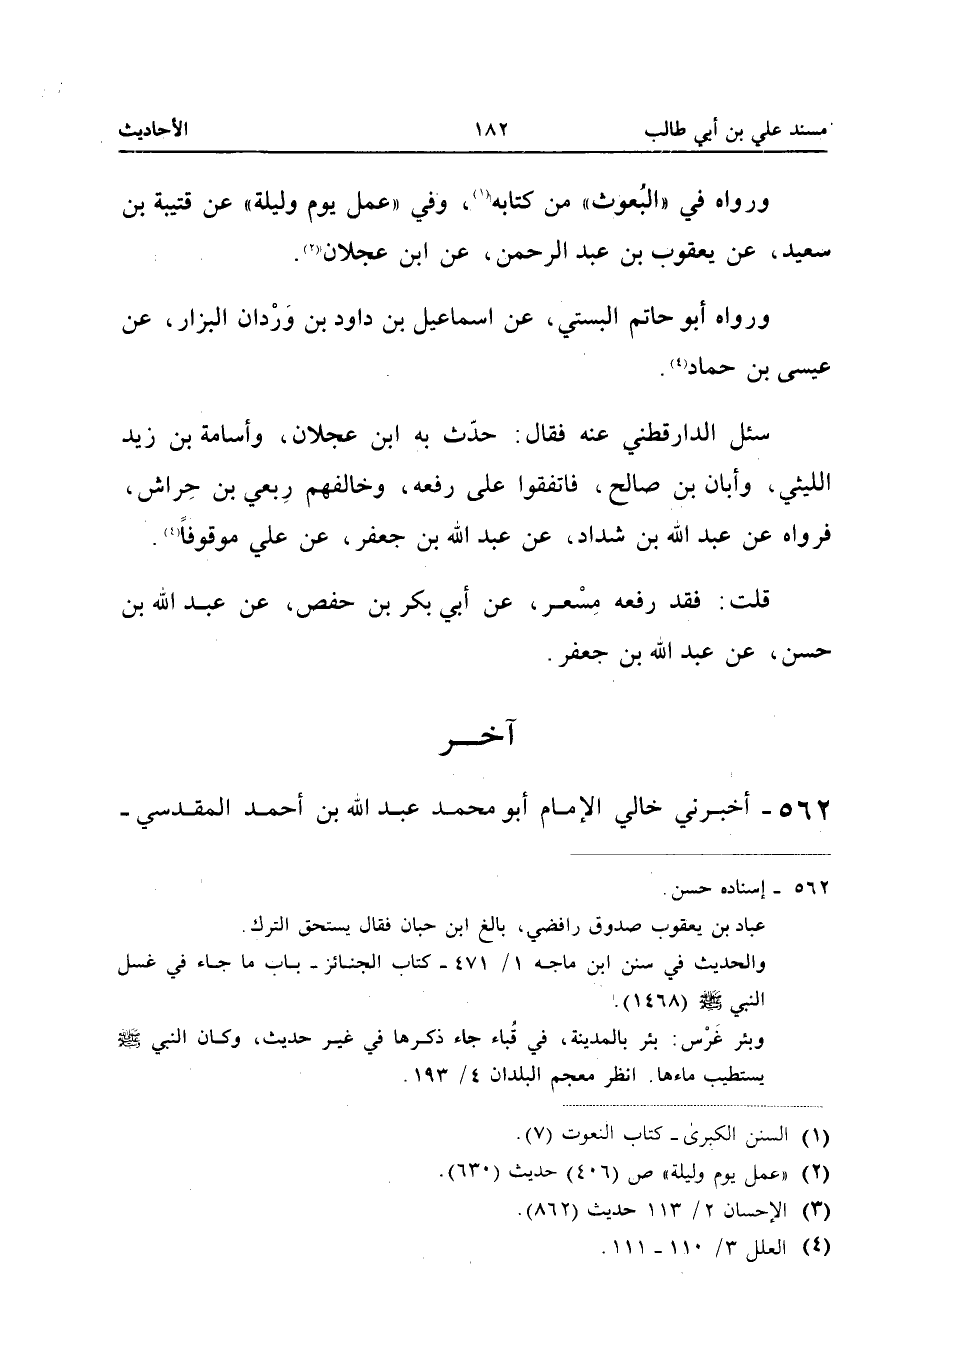 مسند علي بن أبي طالب ١٨٢ الأحاديث
ورواه في «البُعوث» من كتابه(١)، وفي «عمل يوم وليلة» عن قتيبة بن
سعيد، عن يعقوب بن عبد الرحمن، عن ابن عجلان(٢).
ورواه أبو حاتم البستي، عن اسماعيل بن داود بن وَرْدان البزار، عن
عيسى بن حماد(٤).
سئل الدارقطني عنه فقال: حدّث به ابن عجلان، وأسامة بن زيد
الليثي، وأبان بن صالح، فاتفقوا على رفعه، وخالفهم رِبعي بن حِراش،
فرواه عن عبد الله بن شداد، عن عبد الله بن جعفر، عن علي موقوفاً(٤).
قلت: فقد رفعه مِسْعـر، عن أبي بكر بن حفص، عن عبـد الله بن
حسن، عن عبد الله بن جعفر.
آخـــر
٥٦٢ - أخبـرني خالي الإمـام أبو محمـد عبـد الله بن أحمـد المقـدسي -
٥٦٢ - إسناده حسن.
عباد بن يعقوب صدوق رافضي، بالغ ابن حبان فقال يستحق الترك.
والحديث في سنن ابن ماجـه ١/ ٤٧١ - كتاب الجنـائز - بـاب ما جـاء في غسل
النبي ﷺ (١٤٦٨).
وبئر غَرْس: بئر بالمدينة، في قُباء جاء ذكـرها في غيـر حديث، وكـان النبي ﷺ
يستطيب ماءها. انظر معجم البلدان ٤/ ١٩٣.
(١) السنن الكبرى - كتاب النعوت (٧).
(٢) «عمل يوم وليلة» ص (٤٠٦) حديث (٦٣٠).
(٣) الإحسان ٢/ ١١٣ حديث (٨٦٢).
(٤) العلل ٣/ ١١٠ - ١١١.